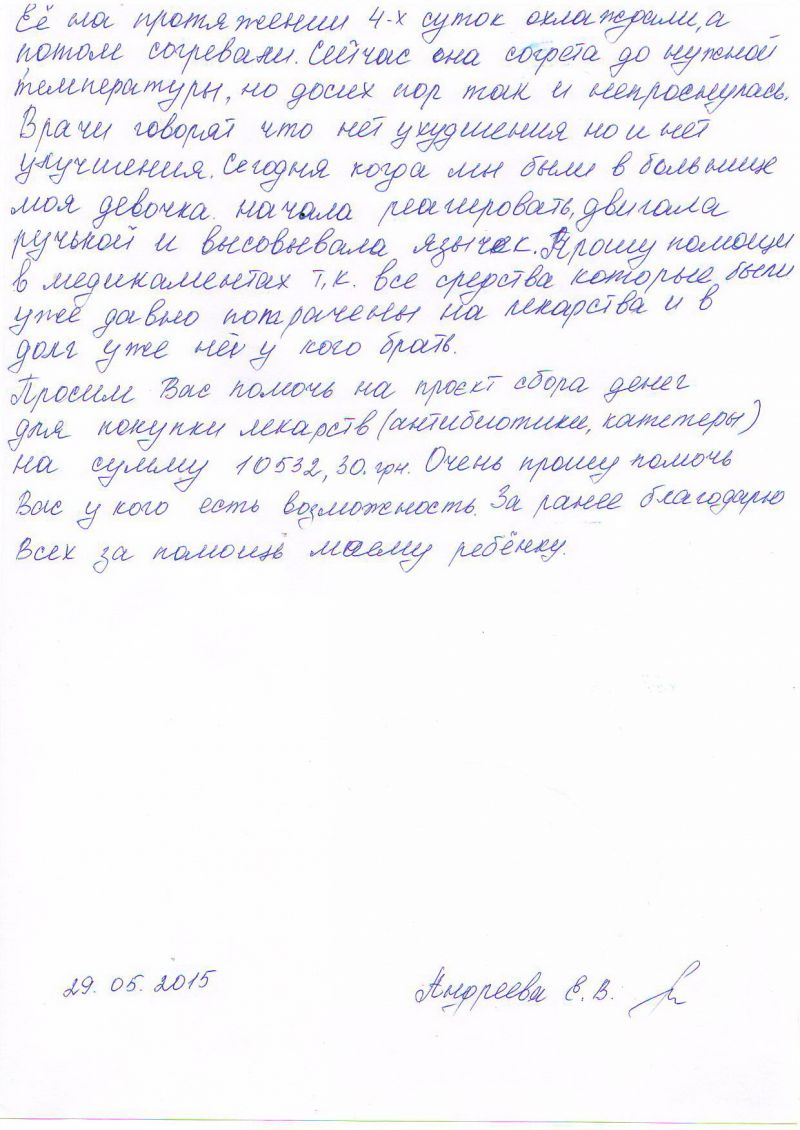 Её на протяжении 4-х суток охлаждали, а
потом согревали. Сейчас она согрета до нужной
температуры, но досих пор так и непроснулась.
Врачи говорят что нет ухудшения но и нет
улучшения. Сегодня когда мы были в больнице
моя девочка начала реагировать, двигала
ручькой и высовывала язычек. Прошу помощи
в медикаментах т.к. все средства которые были
уже давно потрачены на лекарства и в
долг уже нет у кого брать.
Просим Вас помочь на проєкт сбора денег
для покупки лекарств (антибиотики, катетеры)
на сумму 10532,30 грн. Очень прошу помочь
Вас у кого есть возможность. За ранее благодарю
всех за помощь моему ребёнку.
29.05.2015 Андреева Е.В.